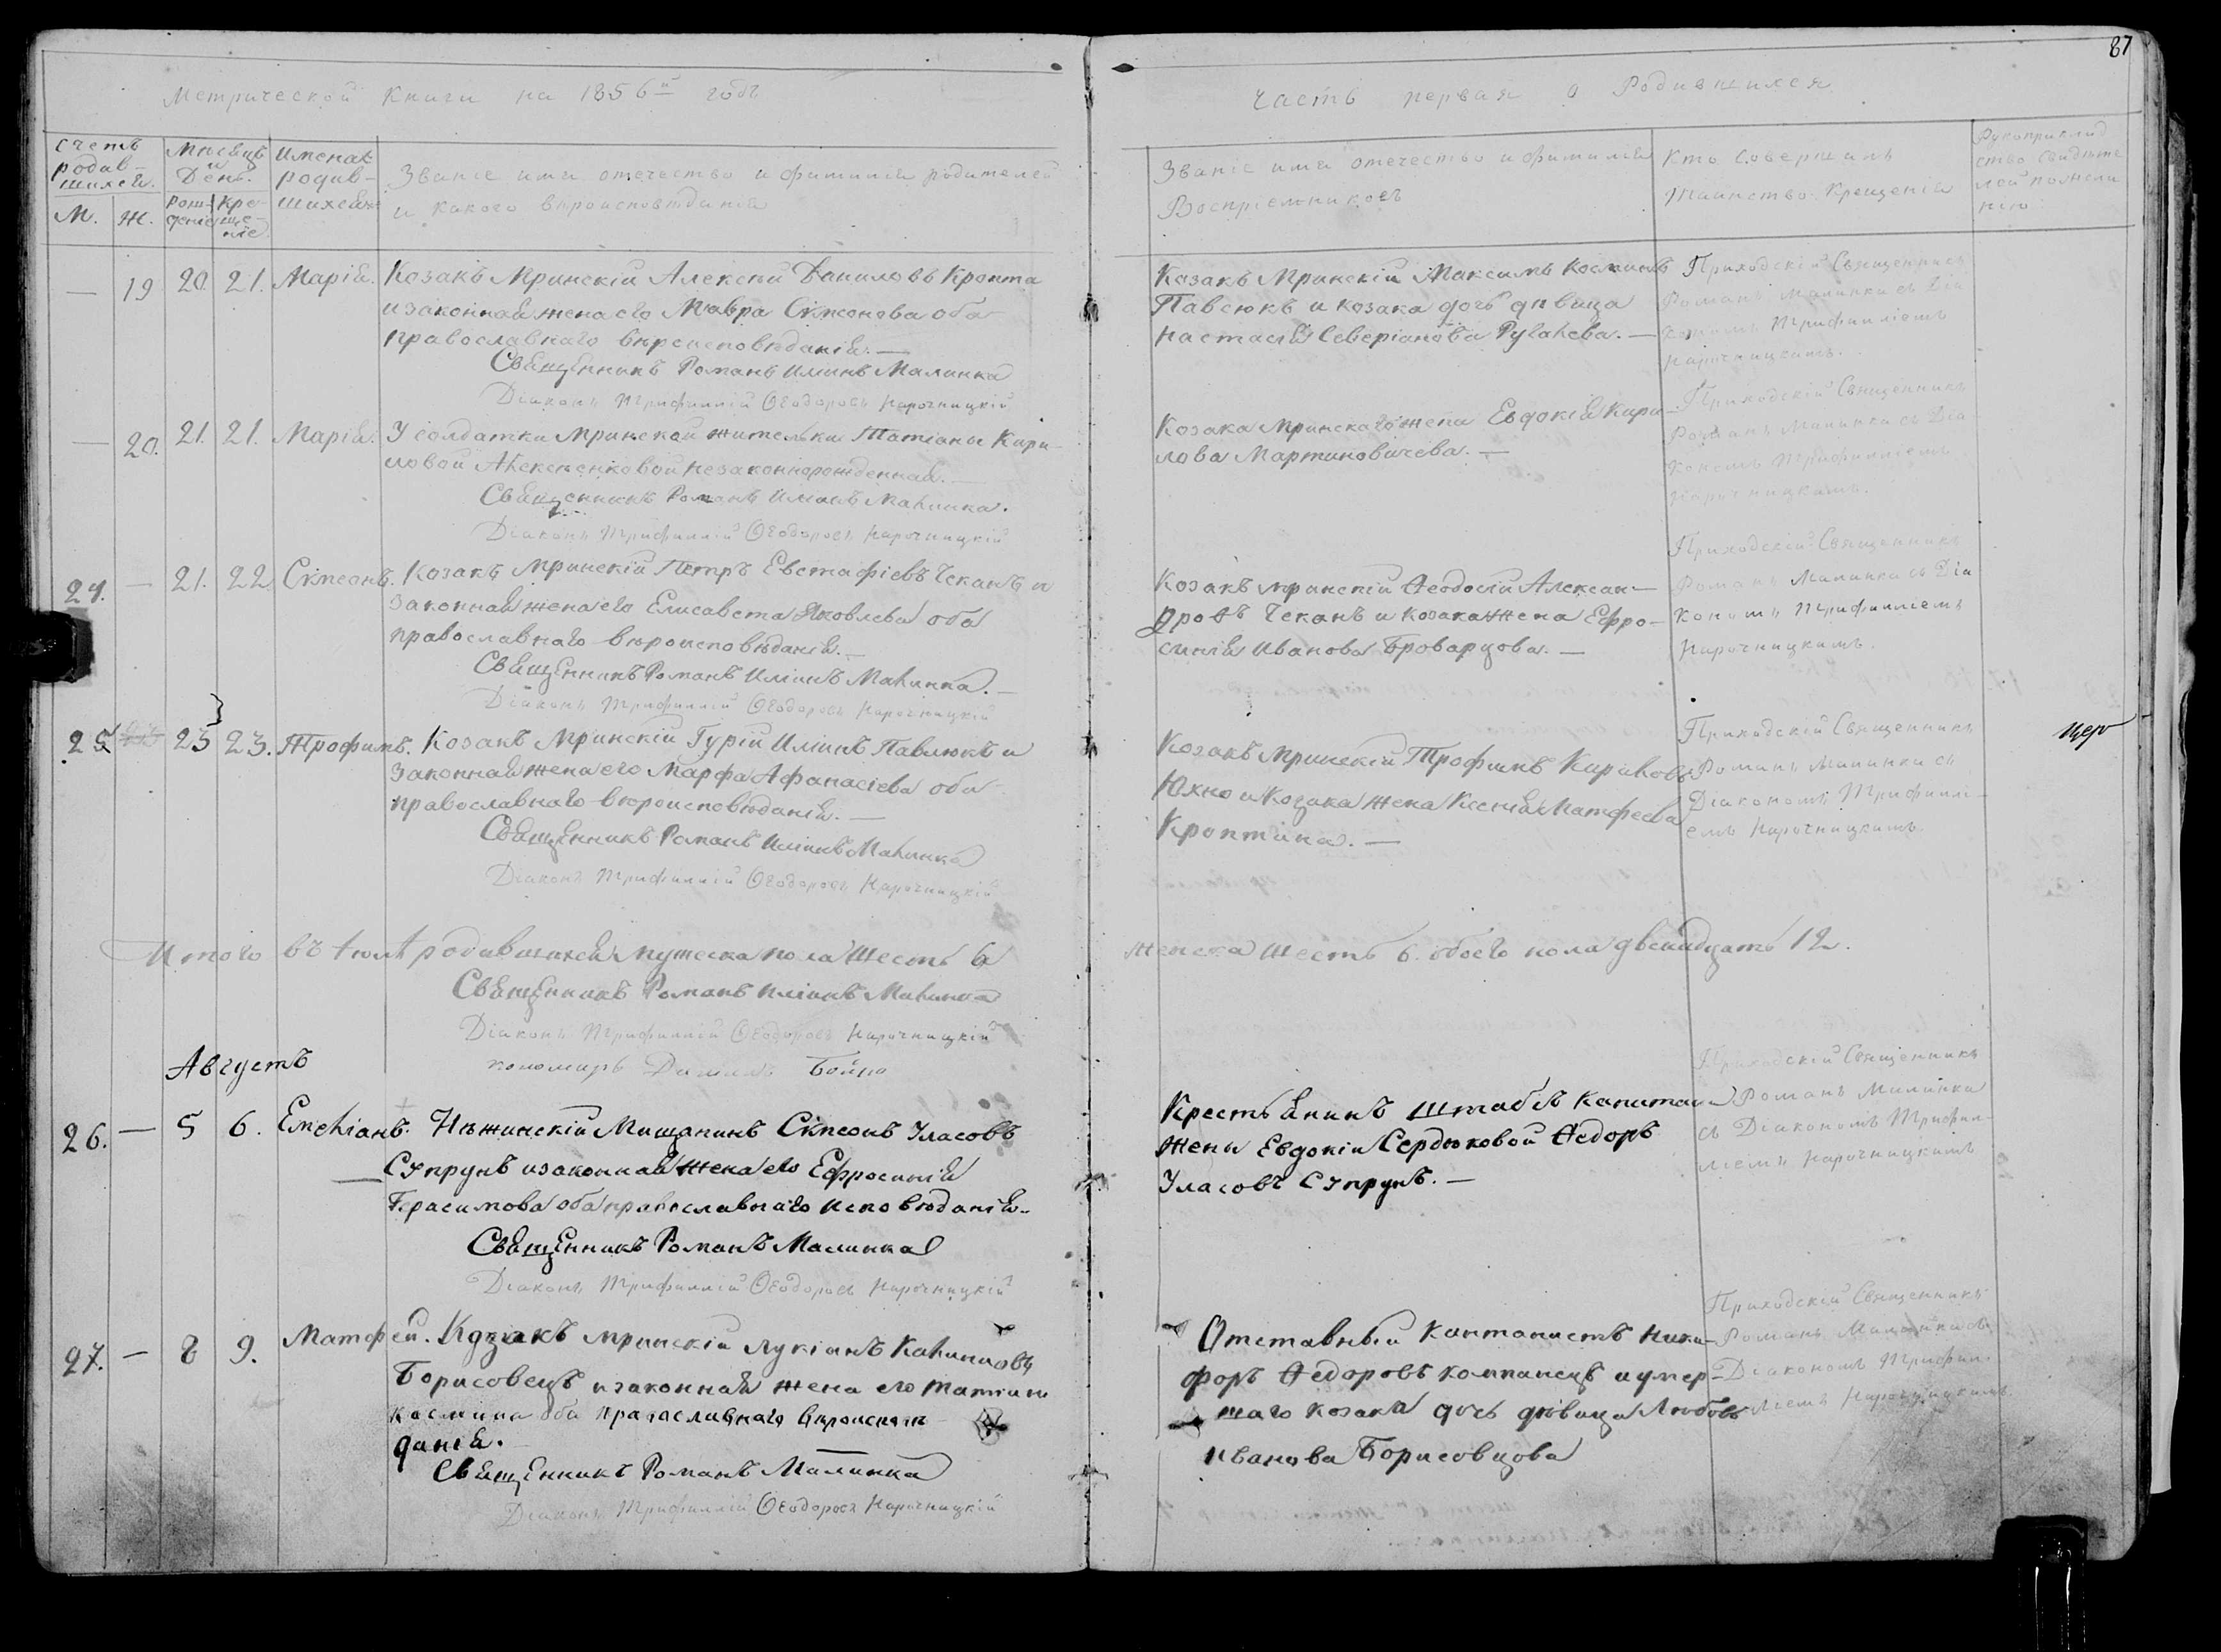 87
Метрической Книги на 1856й годъ
Часть первая о Родившихся
Счетъ родив-шихся.
М.
Ж.
Мѣсяцъ и День.
Рож-деніе
Кре-ще-ніе.
Имена родив-шихся
Званіе имя отечество и фамилія родителей
и какого вѣроисповѣданія
Званіе имя отечество и фамилія
Воспріемниковъ
Кто Совершалъ
Таинство Крещенія
Рукоприклад
ство свидѣте
лей
—
19
20
21.
Марія.
Козакъ Мринскій Алексѣй Даниловъ Кропта
и законная жена его Мавра Сѵмеонова оба
православнаго вѣроисповѣданія. —
Священникъ Романъ Иліинъ Малинка
Діаконъ Трифиллій Ѳеодоровъ Нарочницкій
Козакъ Мринскій Максимъ Косминъ
Павсюкъ и козака дочь дѣвица
Настасія Северіанова Рулаева. —
Приходскій Священникъ
Романъ Малинка съ Діа
кономъ Трифилліемъ
Нарочницкимъ.
—
20.
21.
21.
Марія.
У солдатки Мринской жительки Татіаны Кири-
ловой Алексѣенковой незаконнорожденная. —
Священникъ Романъ Иліинъ Малинка.
Діаконъ Трифиллій Ѳеодоровъ Нарочницкій
Козака Мринскаго жена Евдокія Кири-
лова Мартиновичева. —
Приходскій Священникъ
Романъ Малинка съ Діа-
кономъ Трифилліемъ
Нарочницкимъ.
24.
—
21.
22
Сѵмеонъ.
Козакъ Мринскій Петръ Евстафіевъ Чеканъ и
законная жена его Елисавета Яковлева оба
православнаго вѣроисповѣданія. —
Священникъ Романъ Иліинъ Малинка. —
Діаконъ Трифиллій Ѳеодоровъ Нарочницкій
Козакъ Мринскій Ѳеодосій Алексан-
дровъ Чеканъ и козака жена Ефро-
синія Иванова Броварцова. —
Приходскій Священникъ
Романъ Малинка съ Діа
кономъ Трифилліемъ
Нарочницкимъ.
25
23
23.
Трофимъ.
Козакъ Мринскій Гурій Иліинъ Павлюкъ и
законная жена его Марфа Афанасіева оба
православнаго вѣроисповѣданія. —
Священникъ Романъ Иліинъ Малинка
Діаконъ Трифиллій Ѳеодоровъ Нарочницкій
Козакъ Мринскій Трофимъ Кириловъ
Юхно и Козака жена Ксенія Матфеева
Кроптина. —
Приходскій Священникъ
Романъ Малинка съ
Діакономъ Трифиллі-
емъ Нарочницкимъ
Итого въ Іюлѣ родившихся мужеска пола шесть 6
женска шесть 6. обоего пола двенадцать 12.
Священникъ Романъ Иліинъ Малинка
Діаконъ Трифиллій Ѳеодоровъ Нарочницкій
пономарь Бойко
Августъ
26.
—
5
6.
Емеліанъ.
Нѣжинскій Мищанинъ Сѵмеонъ Уласовъ
Супрунъ и законная жена его Ефросинія
Герасимова оба православнаго исповѣданія.
Священникъ Романъ Малинка
Діаконъ Трифиллій Ѳеодоровъ Нарочницкій
Крестьянинъ Штабсъ Капитан
жены Евдокіи Сердюковой Ѳедоръ
Уласовъ Супрунъ. —
Приходскій Священникъ
Романъ Малинка
съ Діакономъ Трифил-
ліемъ Нарочницкимъ
27.
—
8
9.
Матфей.
Козакъ Мринскій Лукіанъ Калиниовъ
Борисовецъ и законная жена его Татіана
Космина оба православнаго вѣроисповѣ-
данія.
Священникъ Романъ Малинка
Діаконъ Трифиллій Ѳеодоровъ Нарочницкій
Отставный Кантонистъ Ники-
форъ Ѳедоровъ Компанецъ и умер-
шаго козака дочь дѣвица Любовь
Иванова Борисовцова
Приходскій Священникъ
Романъ Малинка съ
Діакономъ Трифил-
ліемъ Нарочницкимъ